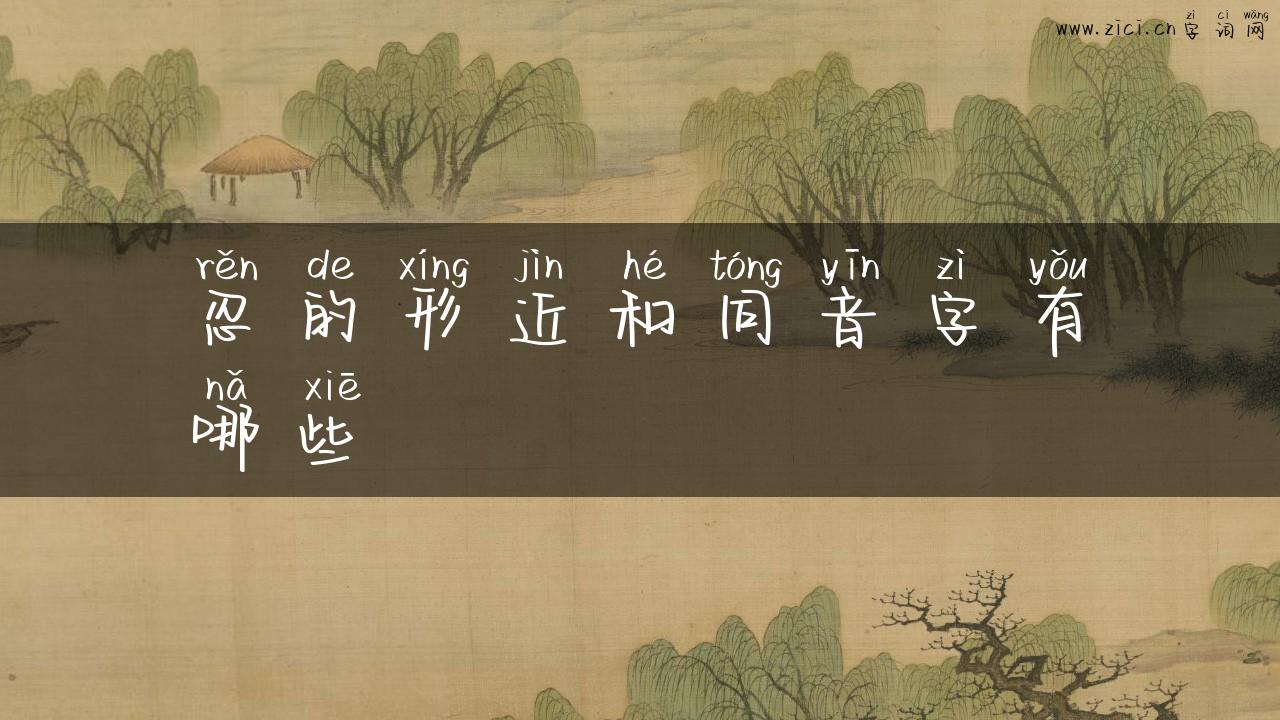 zì cí wǎng
www.zici.cn 字词网
rěn de xíng jìn hé tóng yīn zì yǒu
忍的形近和同音字有
nǎ xiē
哪些